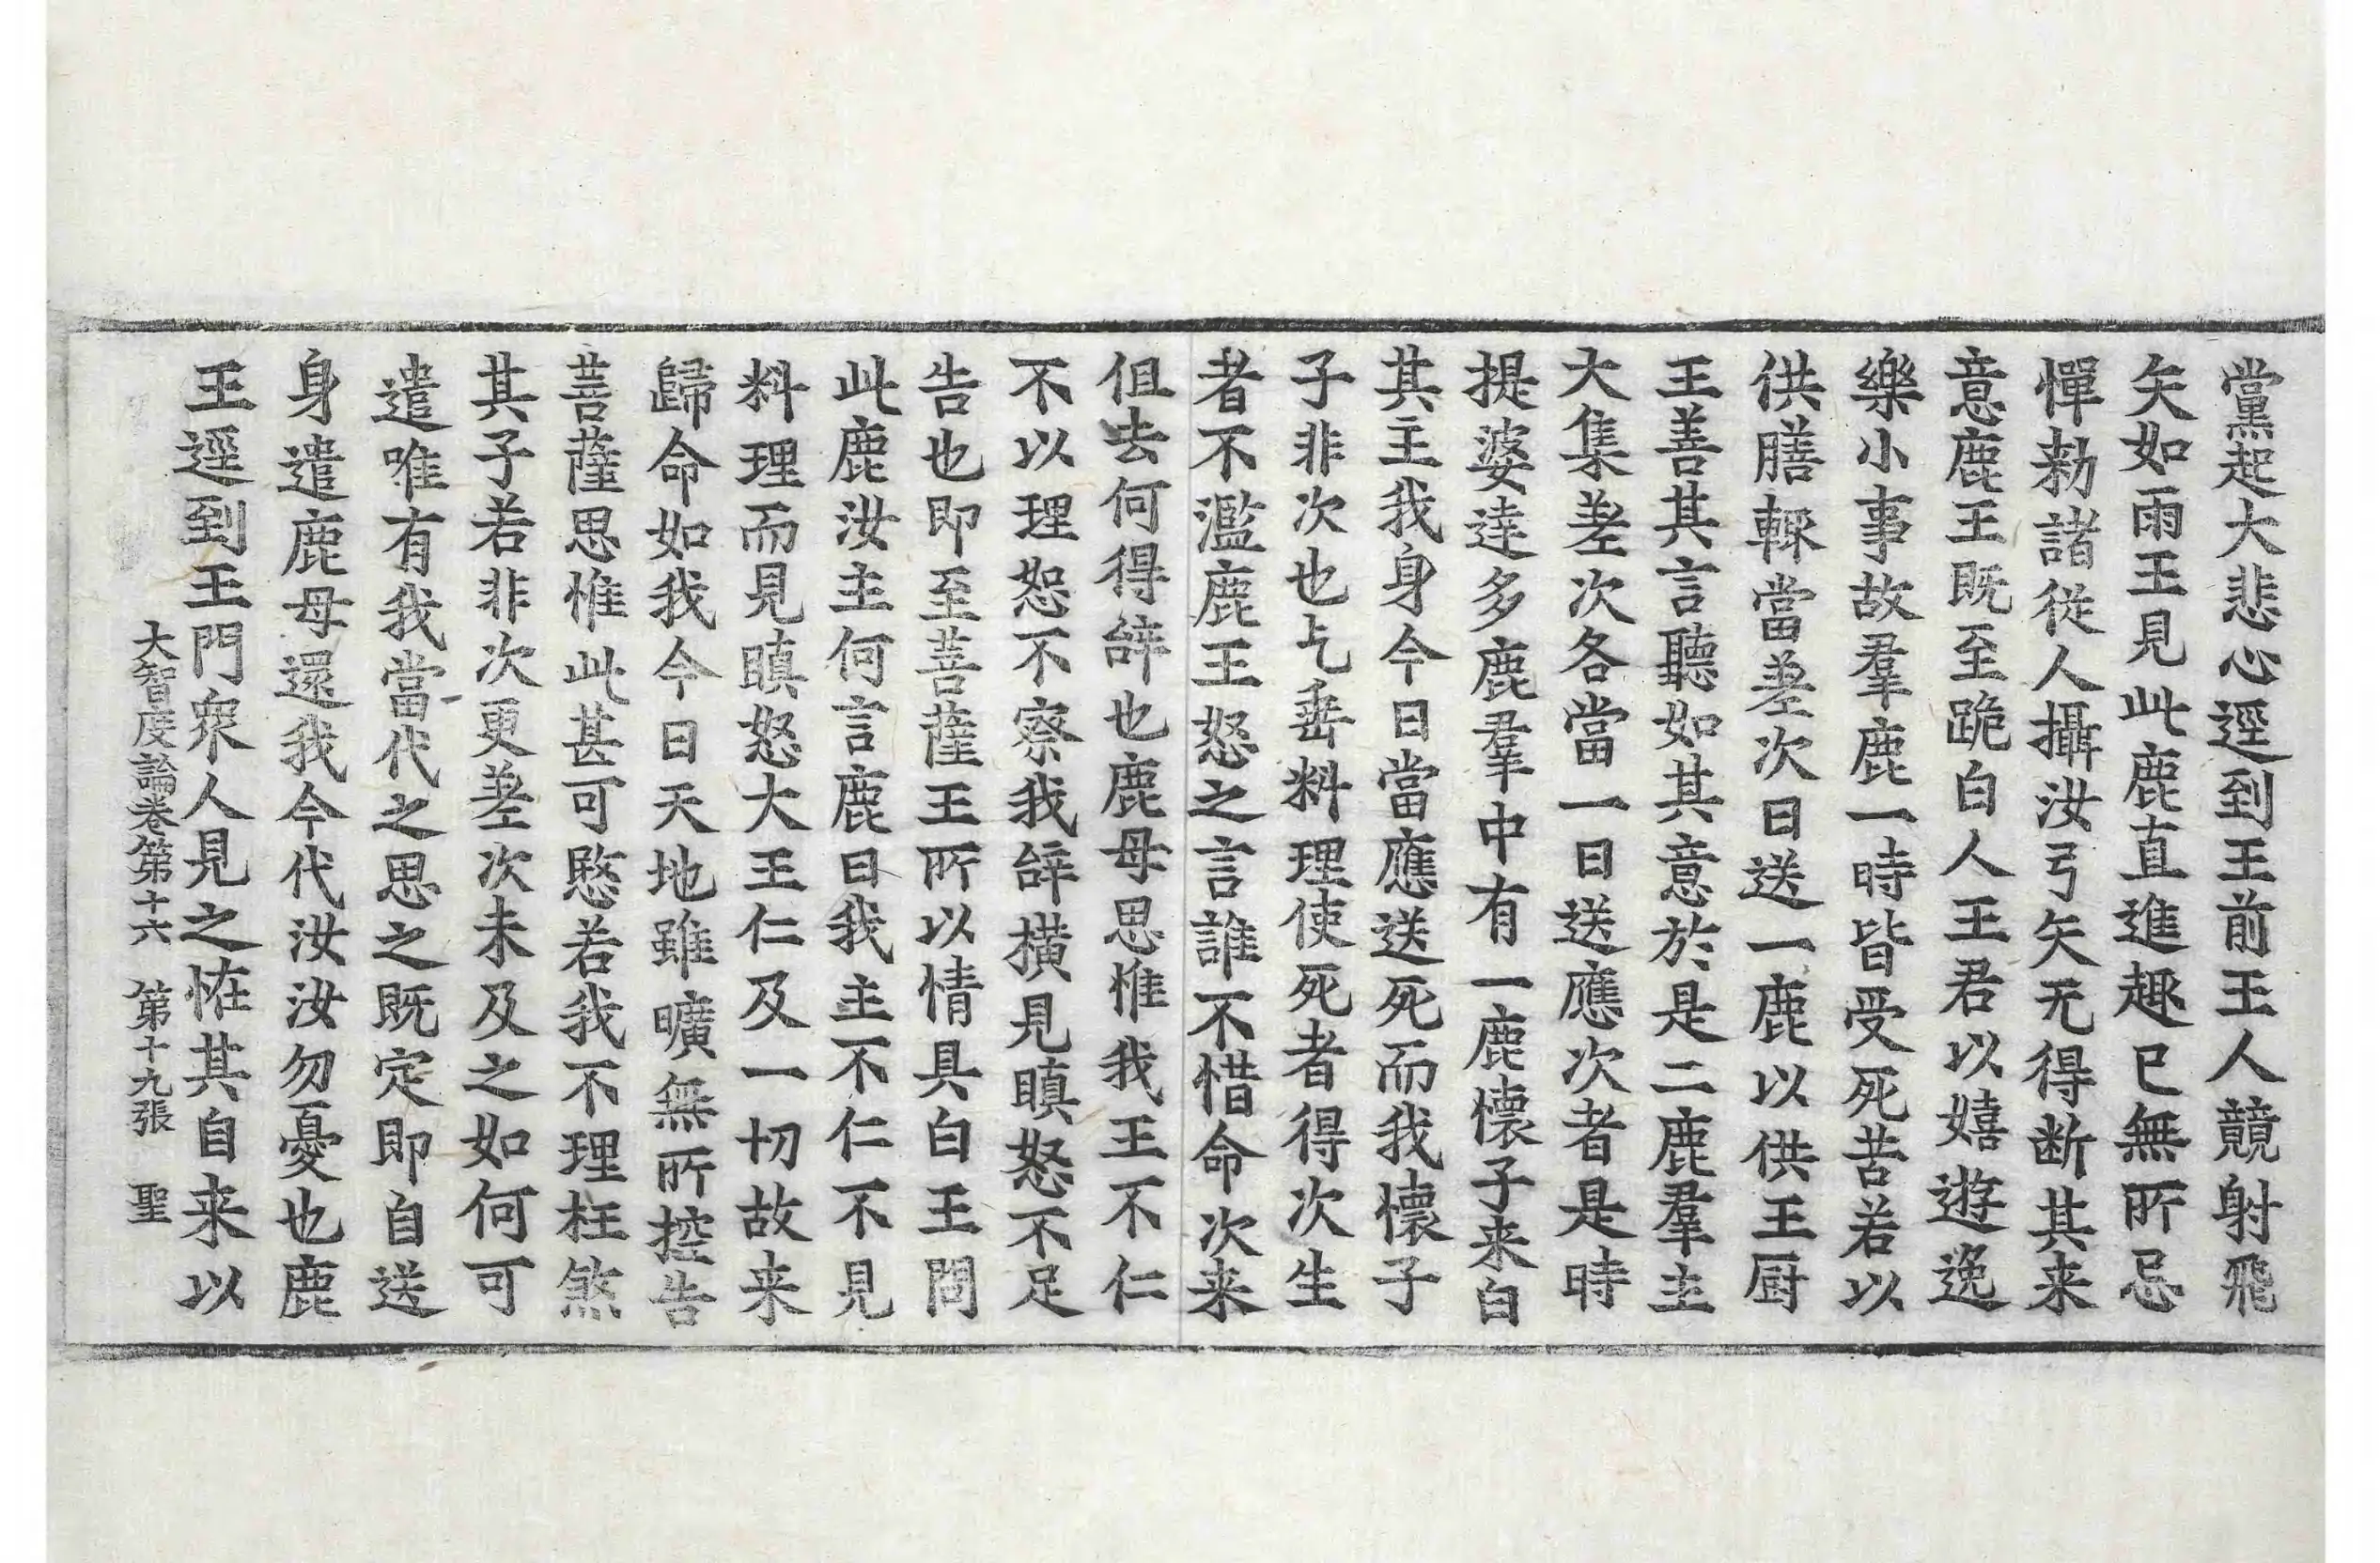 黨起大悲心逕到王前王人競射飛
矢如雨王見此鹿直進趣已無所忌
憚勑諸從人攝汝弓矢无得断其来
意鹿王既至跪白人王君以嬉遊逸
樂小事故羣鹿一時皆受死苦若以
供膳輙當差次日送一鹿以供王厨
王善其言聽如其意於是二鹿羣主
大集差次各當一日送應次者是時
提婆達多鹿羣中有一鹿懷子来白
其主我身今日當應送死而我懷子
子非次也乞垂料理使死者得次生
者不濫鹿王怒之言誰不惜命次来
但去何得辝也鹿母思惟我王不仁
不以理恕不察我辝横見瞋怒不足
告也即至菩薩王所以情具白王問
此鹿汝主何言鹿曰我主不仁不見
料理而見瞋怒大王仁及一切故来
歸命如我今日天地雖曠無所控告
菩薩思惟此甚可愍若我不理枉煞
其子若非次更差次未及之如何可
遣唯有我當代之思之既定即自送
身遣鹿母還我今代汝汝勿憂也鹿
王逕到王門衆人見之恠其自来以
大智度論卷第十六　第十九張　聖